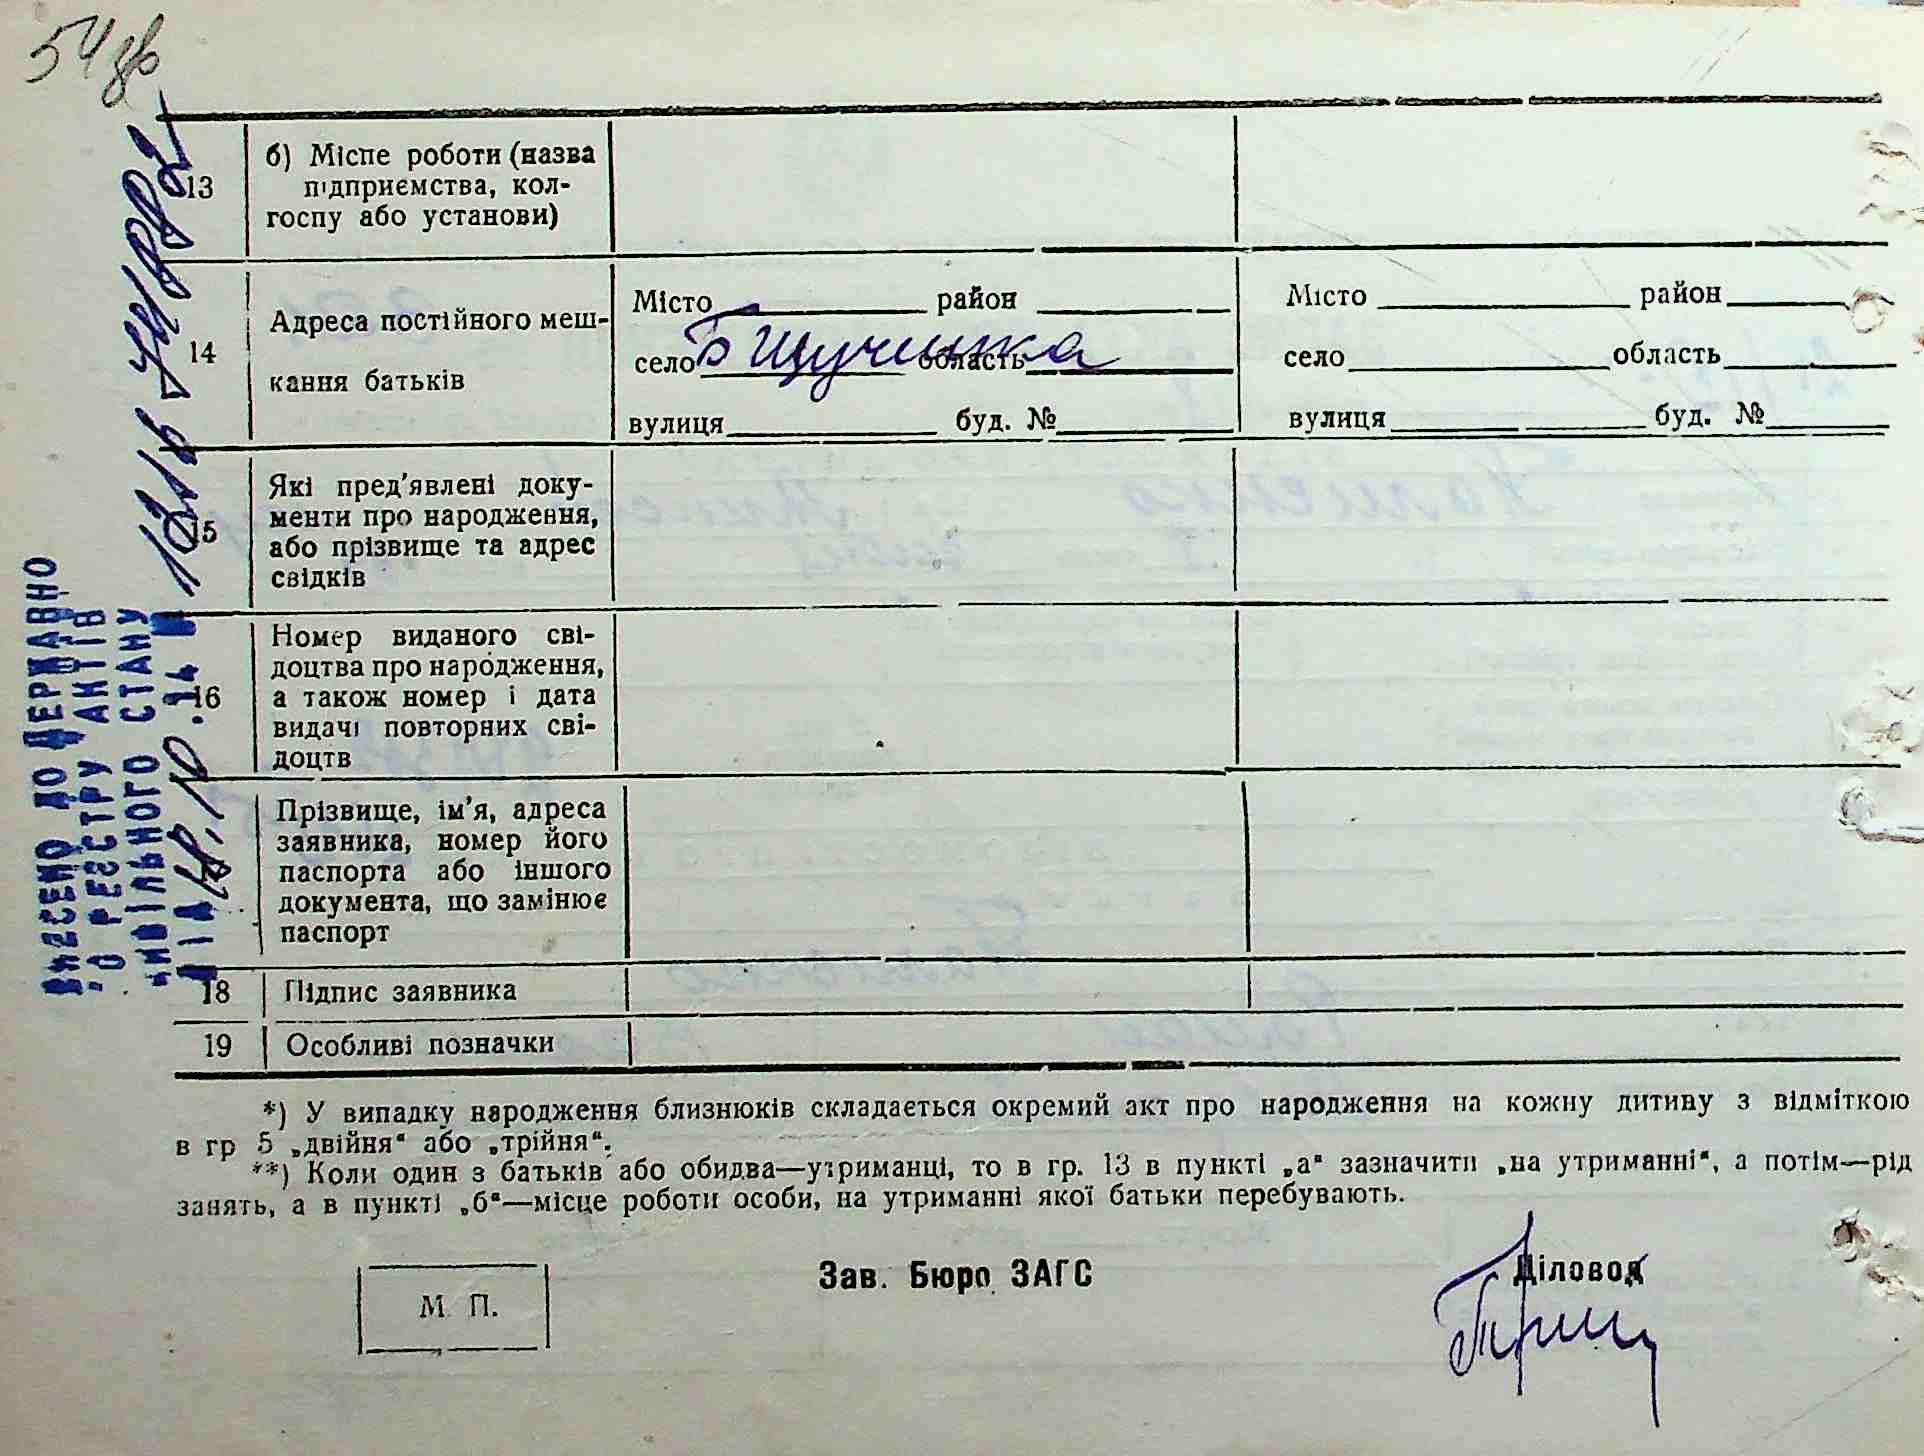 54 зв
13
б) Місце роботи (назва
підприємства, кол-
госпу або установи)
14
Адреса постійного меш-
кання батьків
Місто район
село Б Щучинка область
вулиця буд. №
Місто район
село область
вулиця буд. №
15
Які пред'явлені доку-
менти про народження,
або прізвище та адрес
свідків
16
Номер виданого сві-
доцтва про народження,
а також номер і дата
видачі повторних сві-
доцтв
Прізвище, ім'я, адреса
заявника, номер його
паспорта або іншого
документа, що замінює
паспорт
18 Підпис заявника
19 Особливі позначки
*) У випадку народження близнюків складається окремий акт про народження на кожну дитину з відміткою
в гр 5 „двійня“ або „трійня“.
**) Коли один з батьків або обидва—утриманці, то в гр. 13 в пункті „а“ зазначити „на утриманні“, а потім—рід
занять, а в пункті „б“—місце роботи особи, на утриманні якої батьки перебувають.
М. П.
Зав. Бюро ЗАГС
Діловод
ВНЕСЕНО ДО ДЕРЖАВНО
ГО РЕЄСТРУ АКТІВ
ЦИВІЛЬНОГО СТАНУ